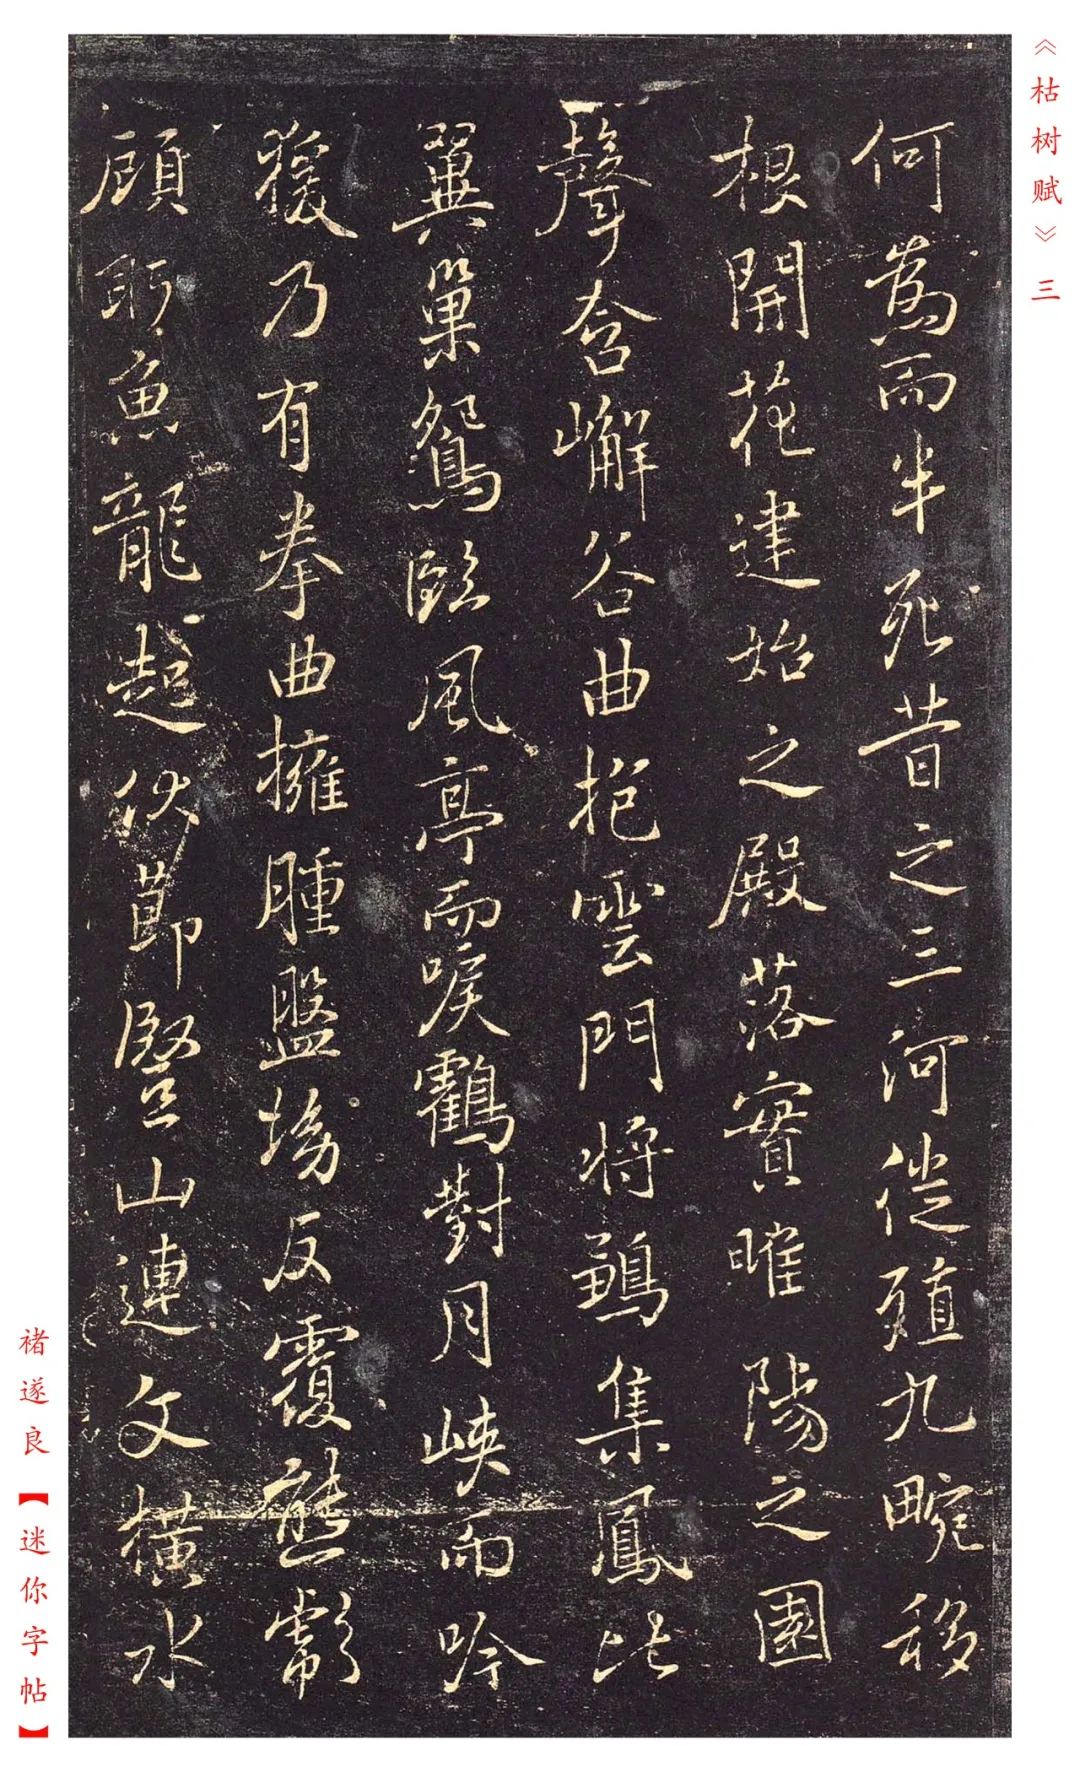 《枯树赋》三
何為而半死昔之三河徙殖九畹移
根開花建始之殿落實睢陽之園
聲含嶰谷曲抱雲門將鶵集鳳比
翼巢鴛臨風亭而唳鶴對月峽而吟
猨乃有拳曲擁腫盤坳反覆熊彪
顧盼魚龍起伏節豎山連文橫水
褚遂良【迷你字帖】